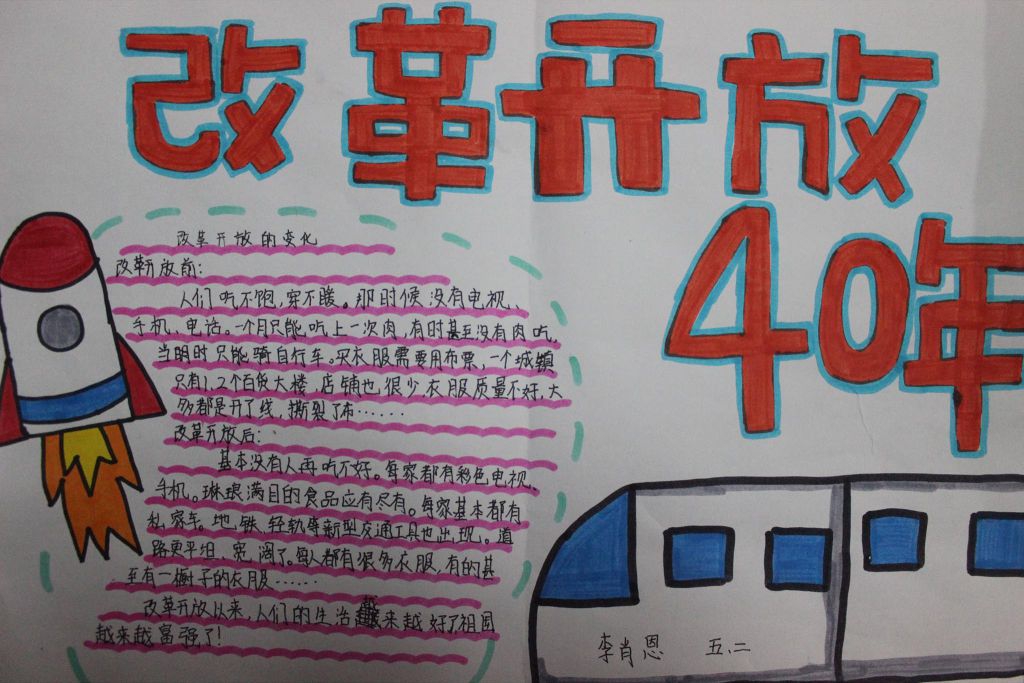 改革开放
40年
改革开放的变化
改革开放前:
人们吃不饱,穿不暖。那时候没有电视、
手机、电话。一个月只能吃上一次肉,有时甚至没有肉吃,
当时只能骑自行车。买衣服需要用布票,一个城镇
只有1、2个百货大楼,店铺也很少,衣服质量不好,大
多都是开了线,撕裂了布……
改革开放后:
基本没有人再吃不好。每家都有彩色电视、
手机。琳琅满目的食品应有尽有。每家基本都有
私家车。地铁、轻轨等新型交通工具也出现。道
路更平坦、宽阔了。每人都有很多衣服,有的甚
至有一橱子的衣服……
改革开放以来,人们的生活越来越好了祖国
越来越富强了!
李肖恩 五、二